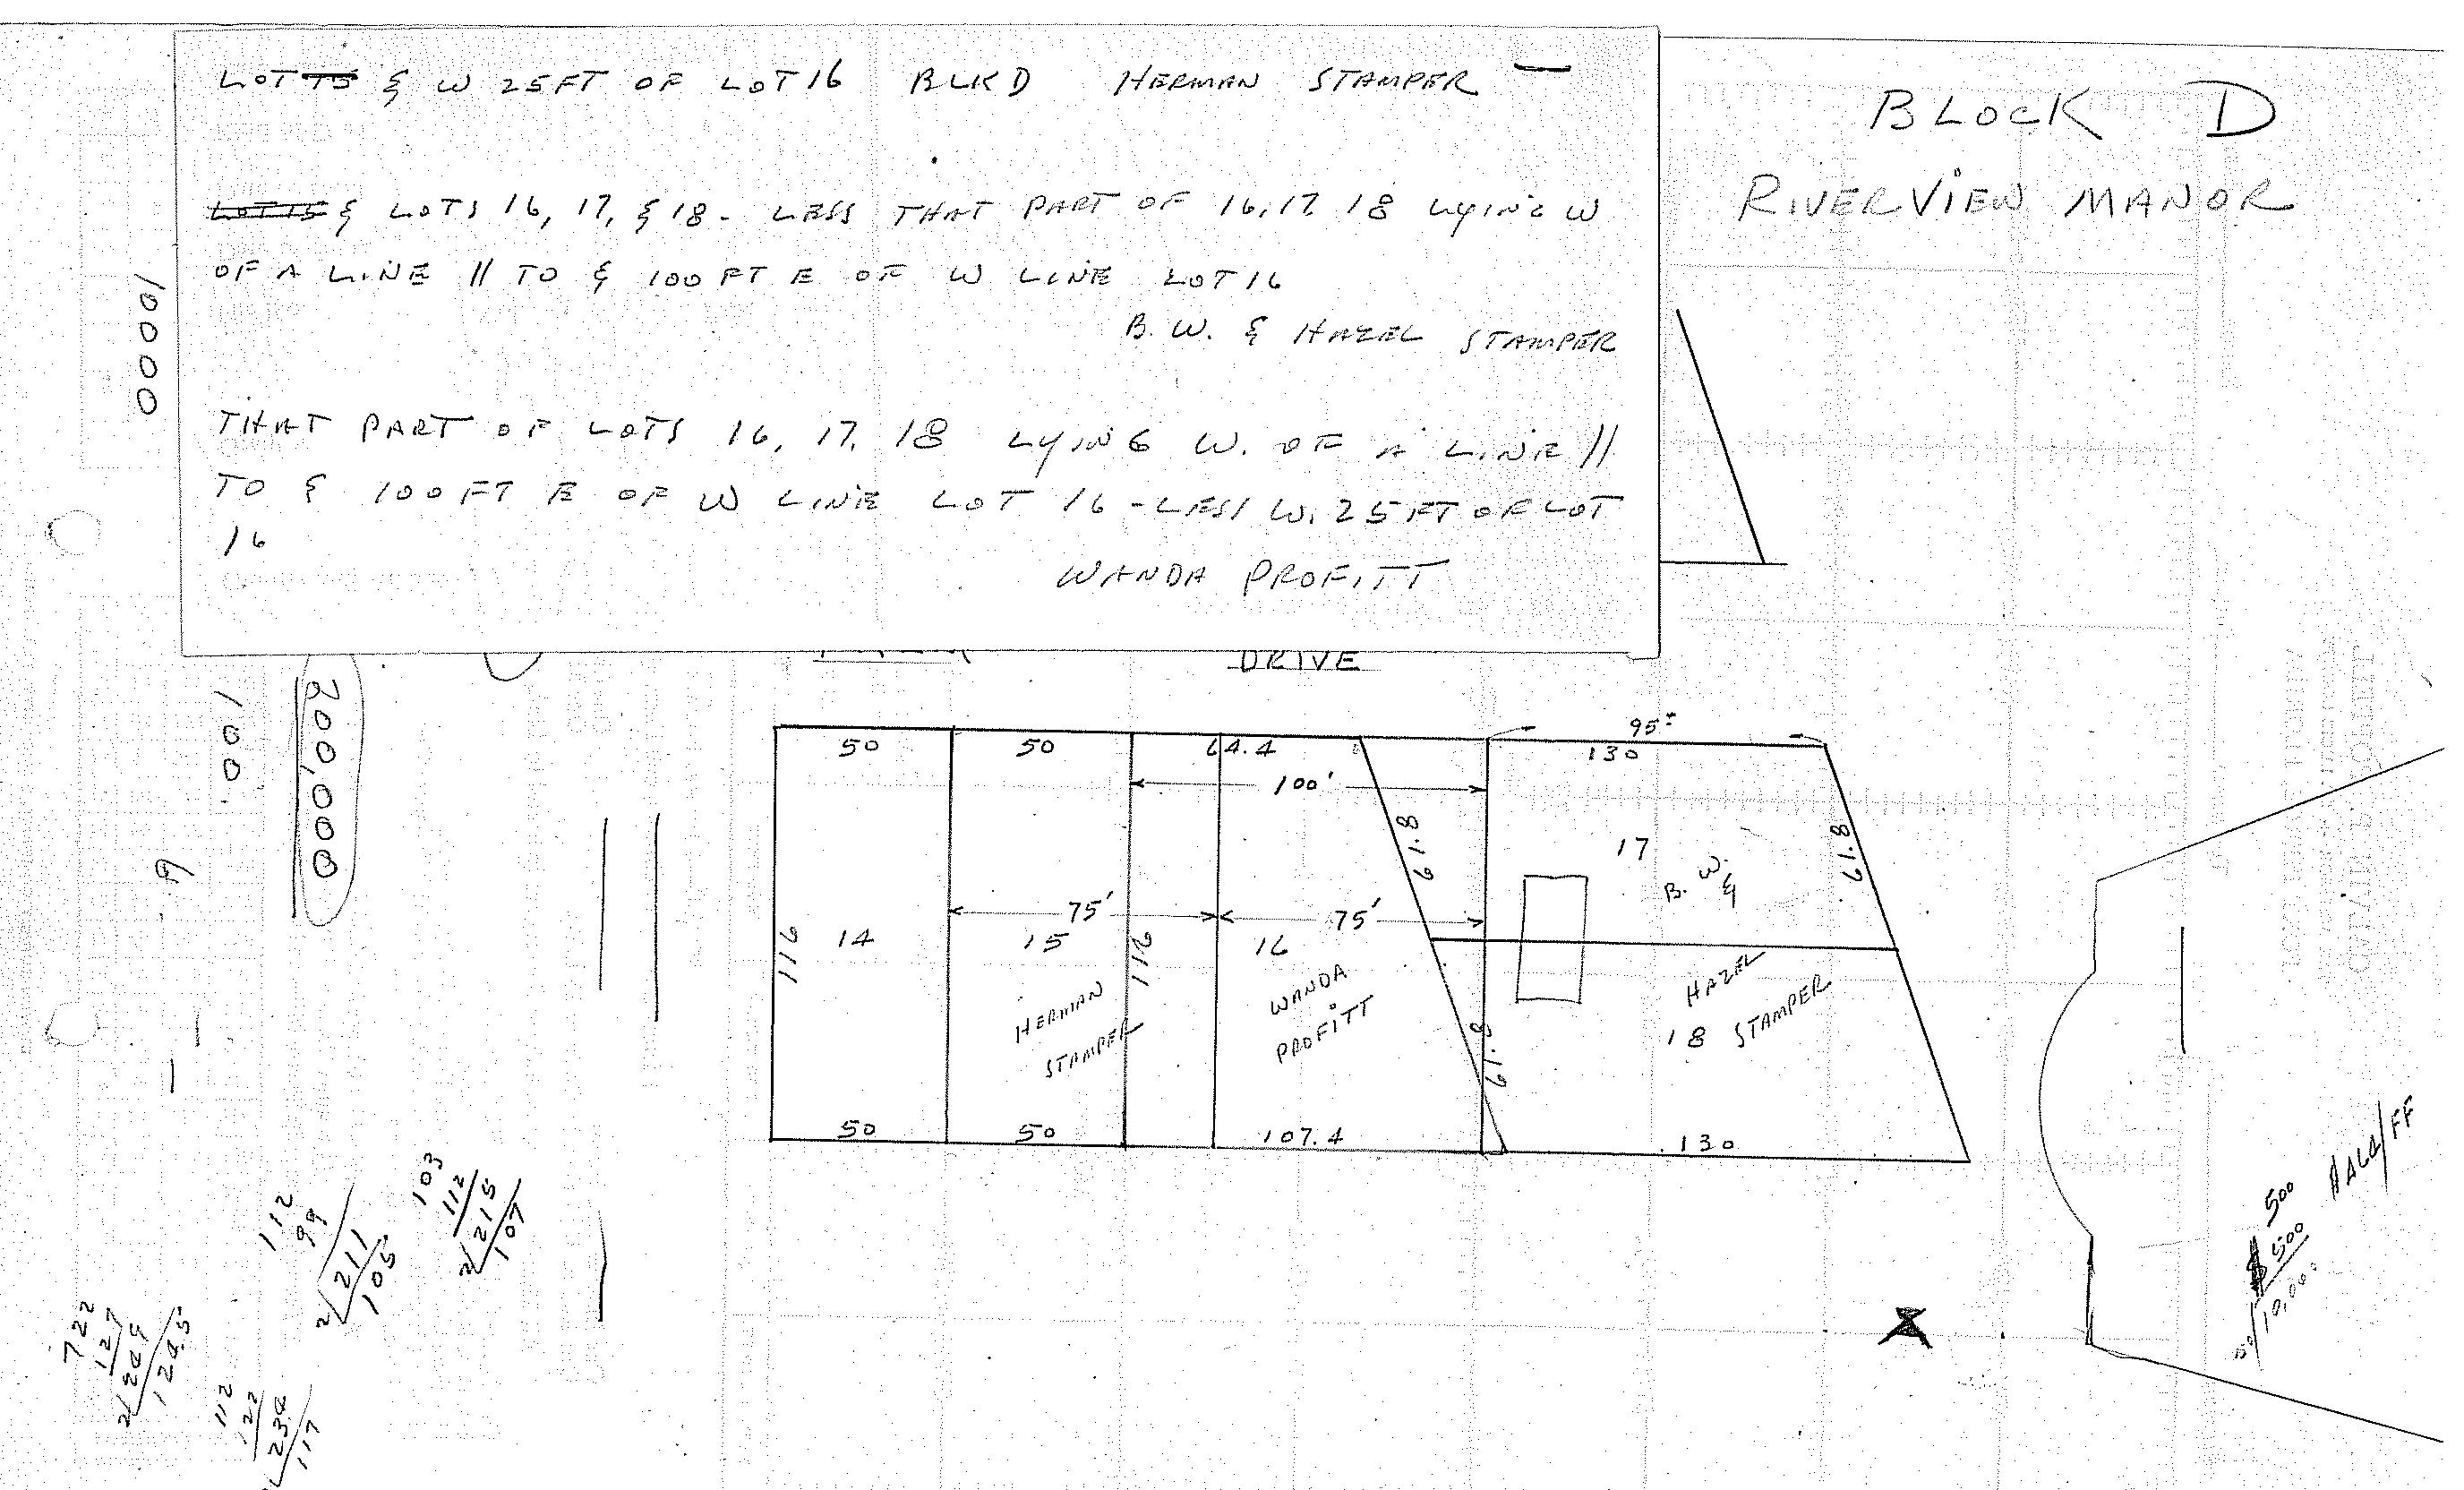 LOT 15 & W 25FT OF LOT 16 BLK D HERMAN STAMPER —
BLOCK D
RIVERVIEW MANOR
LOT 15 & LOTS 16, 17, & 18 - LESS THAT PART OF 16, 17, 18 LYING W
OF A LINE // TO & 100 FT E OF W LINE LOT 16
B. W. & HAZEL STAMPER
THAT PART OF LOTS 16, 17, 18 LYING W. OF A LINE //
TO & 100 FT E OF W LINE LOT 16 - LESS W. 25 FT OF LOT
16
WANDA PROFITT
00001
DRIVE
001
200,000
9
95±
50
50
64.4
130
100'
61.8
61.8
17
B. W.
&
75'
75'
116
14
15
112
16
HERMAN
STAMPER
WANDA
PROFITT
HAZEL
18 STAMPER
61.8
50
50
107.4
130
103
112
2/215
107
112
99
2/211
105
722
127
2/249
124.5
112
122
234
117
500
$500